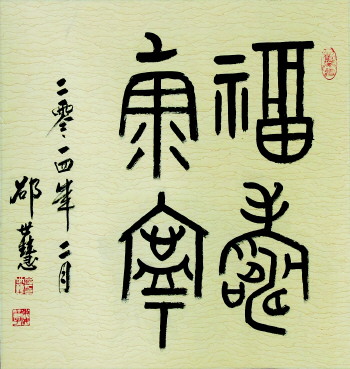 福壽
康寧
二零一四年二月
邵世慧